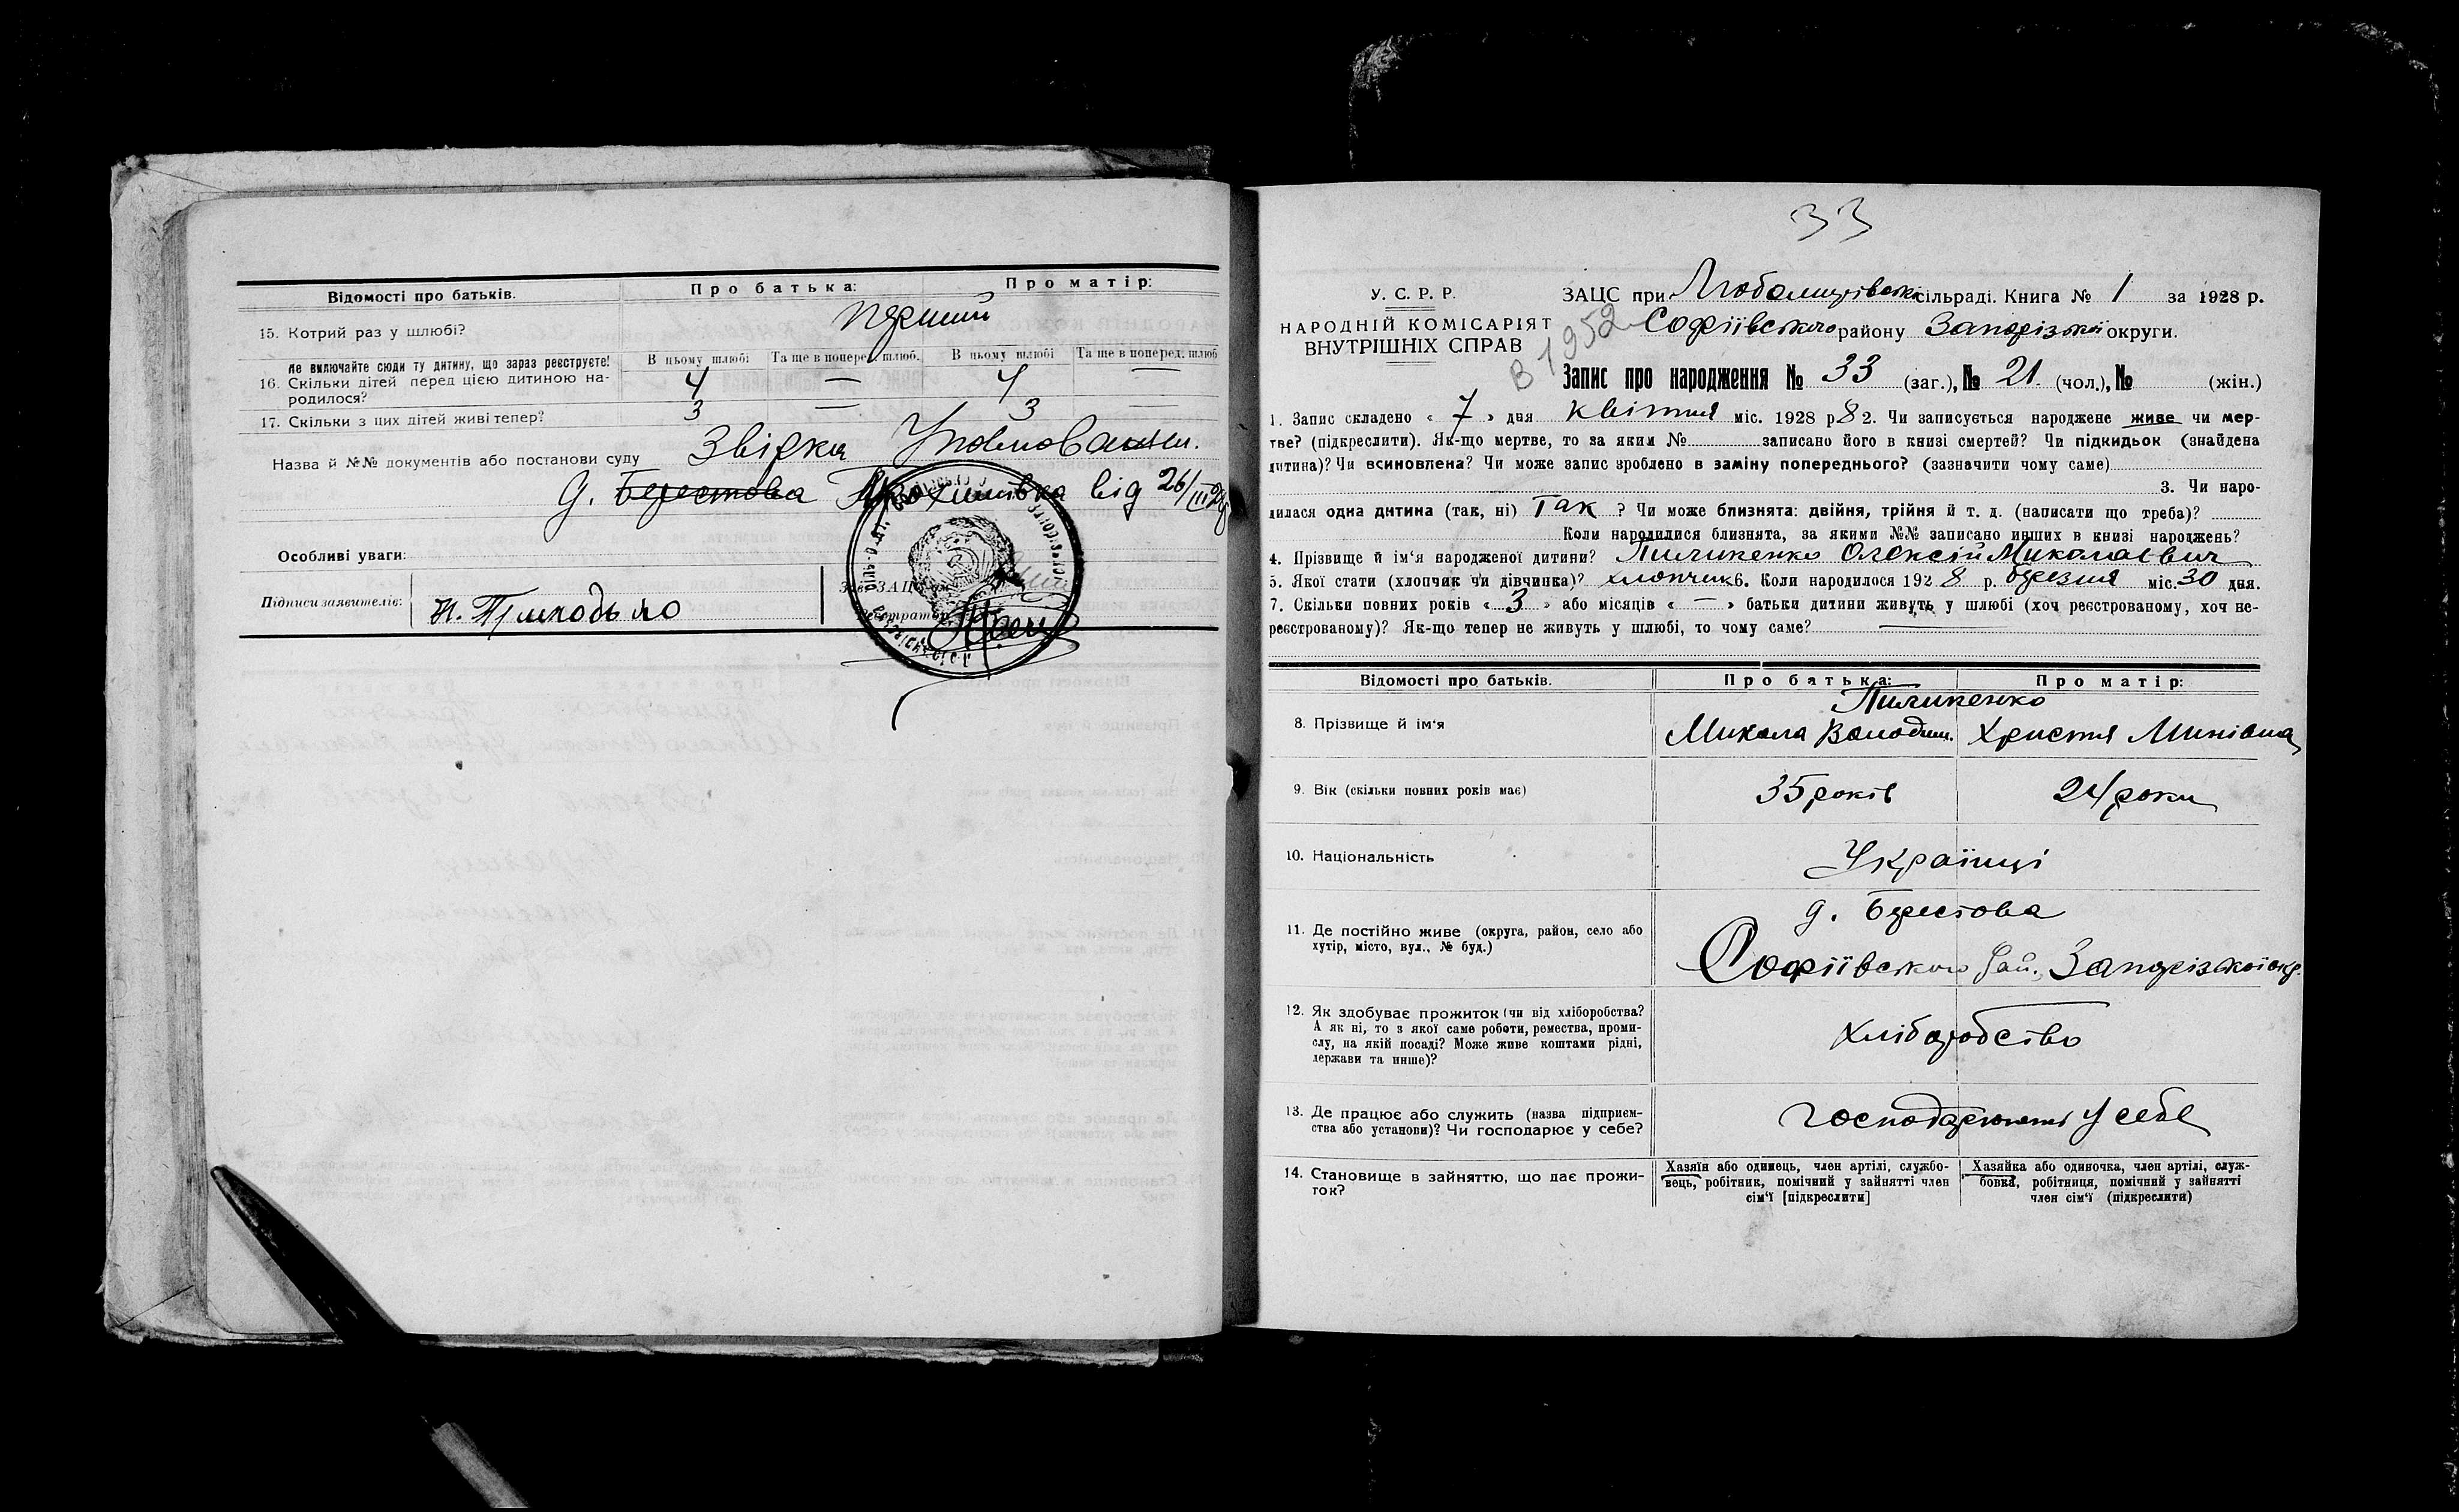 Відомості про батьків.
Про батька:
Про матір:
15. Котрий раз у шлюбі?
перший
Не включайте сюди ту дитину, що зараз реєструєте!
16. Скільки дітей перед цією дитиною на-
родилося?
В цьому шлюбі
Та ще в попере. шлюб.
В цьому шлюбі
Та ще в поперед. шлюб
4 — 4 —
17. Скільки з цих дітей живі тепер?
3 — 3 —
Назва й №№ документів або постанови суду
Звірка
д. Берестова від 26/III 28
Особливі уваги:
Підписи заявителів:
33
У. С. Р. Р.
НАРОДНІЙ КОМІСАРІЯТ
ВНУТРІШНІХ СПРАВ
В 1952
ЗАЦС при сільраді. Книга № 1 за 1928 р.
Софіївського району Запорізької округи.
Запис про народження № 33 (заг.), № 21. (чол.), № (жін.)
1. Запис складено « 7 » дня квітня міс. 1928 р. 2. Чи записується народжене живе чи мер-
тве? (підкреслити). Як-що мертве, то за яким № записано його в книзі смертей? Чи підкидьок (знайдена
дитина)? Чи всиновлена? Чи може запис зроблено в заміну попереднього? (зазначити чому саме)
3. Чи наро-
дилася одна дитина (так, ні) Так ? Чи може близнята: двійня, трійня й т. д. (написати що треба)?
Коли народилися близнята, за якими №№ записано инших в книзі народжень?
4. Прізвище й ім'я народженої дитини? Пилипенко Олексій Миколаєвич
5. Якої стати (хлопчик чи дівчинка)? хлопчик 6. Коли народилося 1928 р. березня міс. 30 дня.
7. Скільки повних років « 3 » або місяців « — » батьки дитини живуть у шлюбі (хоч реєстрованому, хоч не-
реєстрованому)? Як-що тепер не живуть у шлюбі, то чому саме?
Відомості про батьків.
Про батька:
Про матір:
Пилипенко
8. Прізвище й ім'я
Микола Володим.
Христя Минівна
9. Вік (скільки повних років має)
35 років
24 роки
10. Національність
Українці
11. Де постійно живе (округа, район, село або
хутір, місто, вул., № буд.)
д. Берестова
Софіївського рай. Запорізької окр.
12. Як здобуває прожиток (чи від хліборобства?
А як ні, то з якої саме роботи, ремества, проми-
слу, на якій посаді? Може живе коштами рідні,
держави та инше)?
Хліборобство
13. Де працює або служить (назва підприєм-
ства або установи)? Чи господарює у себе?
Господарюють у себе
14. Становище в зайняттю, що дає прожи-
ток?
Хазяїн або одинець, член артілі, службо-
вець, робітник, помічний у зайнятті член
сім'ї [підкреслити]
Хазяйка або одиночка, член артілі, служ-
бовка, робітниця, помічний у зайнятті
член сім'ї (підкреслити)